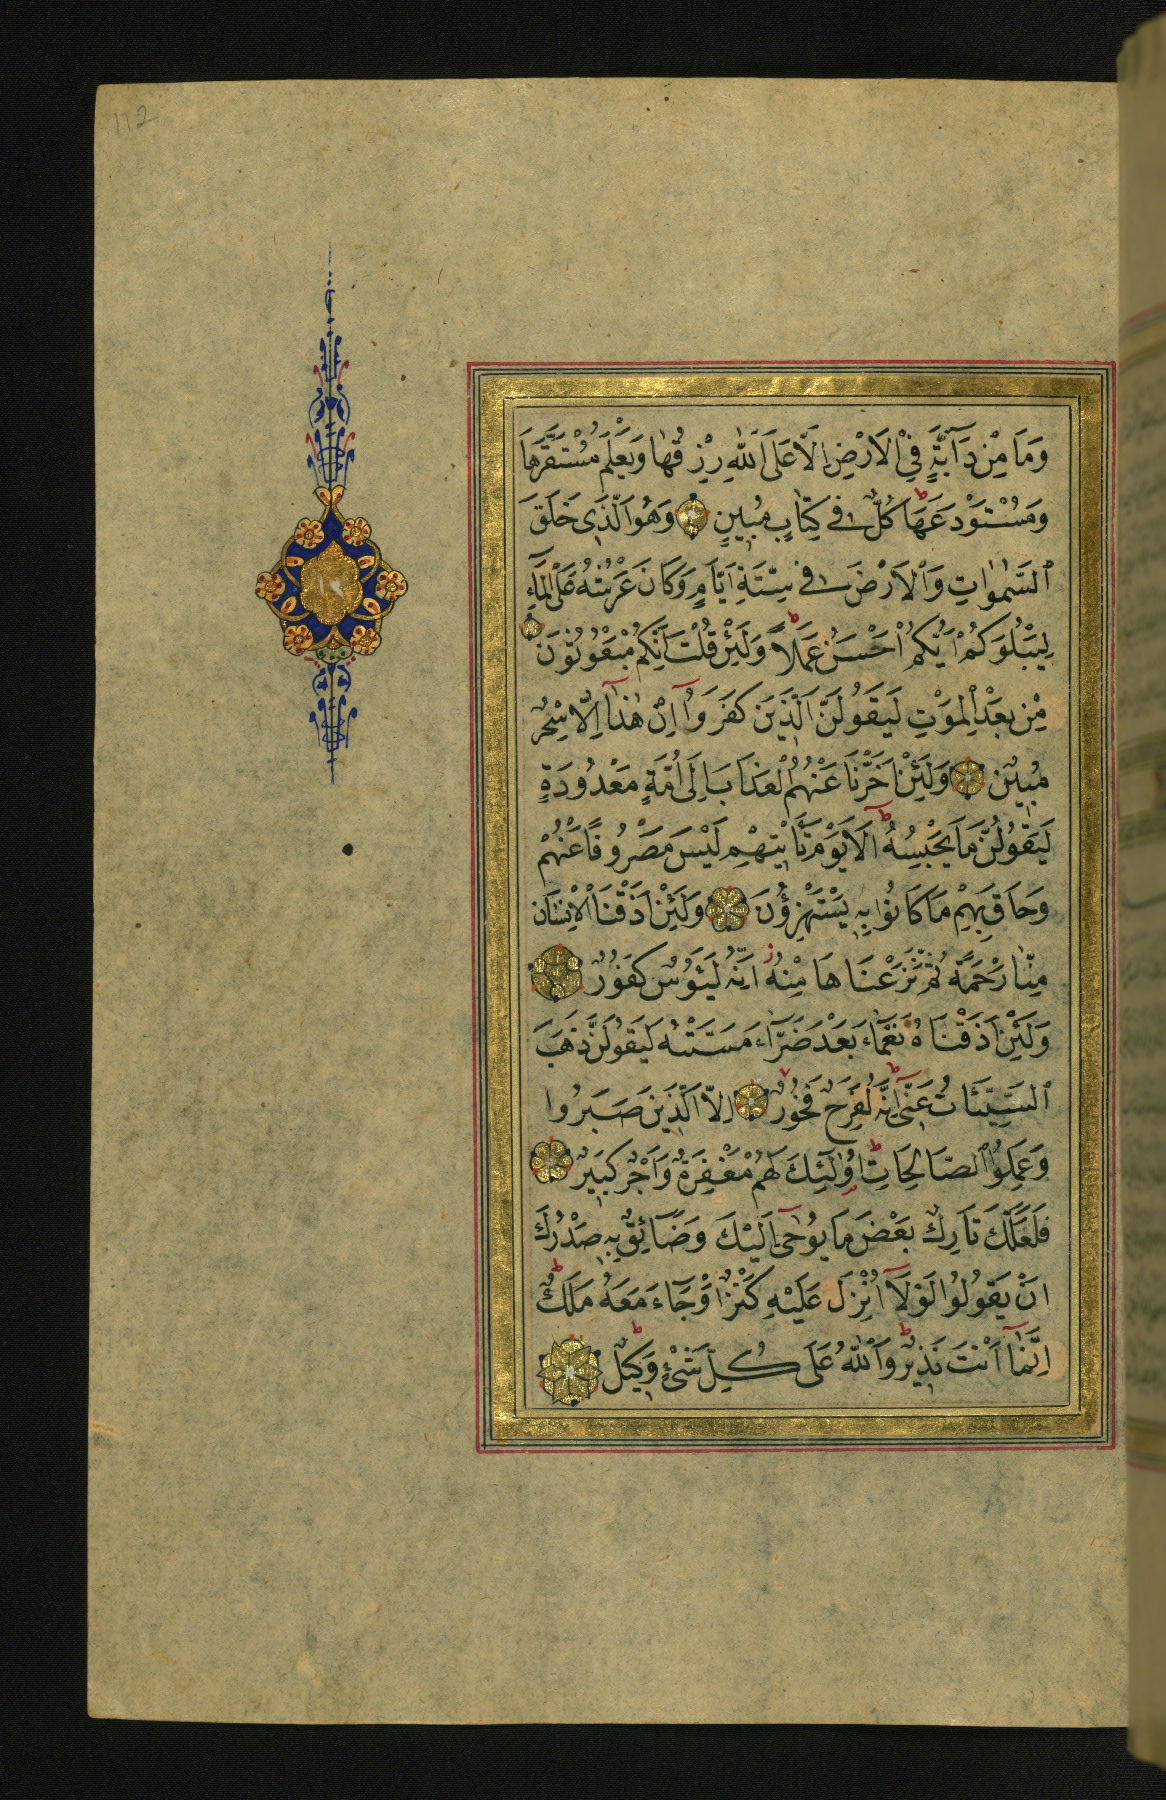 112
وَمَا مِنْ دَآبَّةٍ فِي الْاَرْضِ اِلَّا عَلَى اللّٰهِ رِزْقُهَا وَيَعْلَمُ مُسْتَقَرَّهَا
وَمُسْتَوْدَعَهَا كُلٌّ فِي كِتَابٍ مُبِينٍ وَهُوَ الَّذِي خَلَقَ
السَّمٰوَاتِ وَالْاَرْضَ فِي سِتَّةِ اَيَّامٍ وَكَانَ عَرْشُهُ عَلَى الْمَآءِ
لِيَبْلُوَكُمْ اَيُّكُمْ اَحْسَنُ عَمَلًا وَلَئِنْ قُلْتَ اِنَّكُمْ مَبْعُوثُونَ
مِنْ بَعْدِ الْمَوْتِ لَيَقُولَنَّ الَّذِينَ كَفَرُوآ اِنْ هٰذَآ اِلَّا سِحْرٌ
مُبِينٌ وَلَئِنْ اَخَّرْنَا عَنْهُمُ الْعَذَابَ اِلَى اُمَّةٍ مَعْدُودَةٍ
لَيَقُولُنَّ مَا يَحْبِسُهُ اَلَا يَوْمَ يَاْتِيهِمْ لَيْسَ مَصْرُوفًا عَنْهُمْ
وَحَاقَ بِهِمْ مَا كَانُوا بِهِ يَسْتَهْزِؤُنَ وَلَئِنْ اَذَقْنَا الْاِنْسَانَ
مِنَّا رَحْمَةً ثُمَّ نَزَعْنَاهَا مِنْهُ اِنَّهُ لَيَؤُسٌ كَفُورٌ
وَلَئِنْ اَذَقْنَاهُ نَعْمَآءَ بَعْدَ ضَرَّآءَ مَسَّتْهُ لَيَقُولَنَّ ذَهَبَ
السَّيِّئَاتُ عَنِّي اِنَّهُ لَفَرِحٌ فَخُورٌ اِلَّا الَّذِينَ صَبَرُوا
وَعَمِلُوا الصَّالِحَاتِ اُولٰئِكَ لَهُمْ مَغْفِرَةٌ وَاَجْرٌ كَبِيرٌ
فَلَعَلَّكَ تَارِكٌ بَعْضَ مَا يُوحٰى اِلَيْكَ وَضَآئِقٌ بِهِ صَدْرُكَ
اَنْ يَقُولُوا لَوْلَآ اُنْزِلَ عَلَيْهِ كَنْزٌ اَوْ جَآءَ مَعَهُ مَلَكٌ
اِنَّمَآ اَنْتَ نَذِيرٌ وَاللّٰهُ عَلَى كُلِّ شَيْءٍ وَكِيلٌ